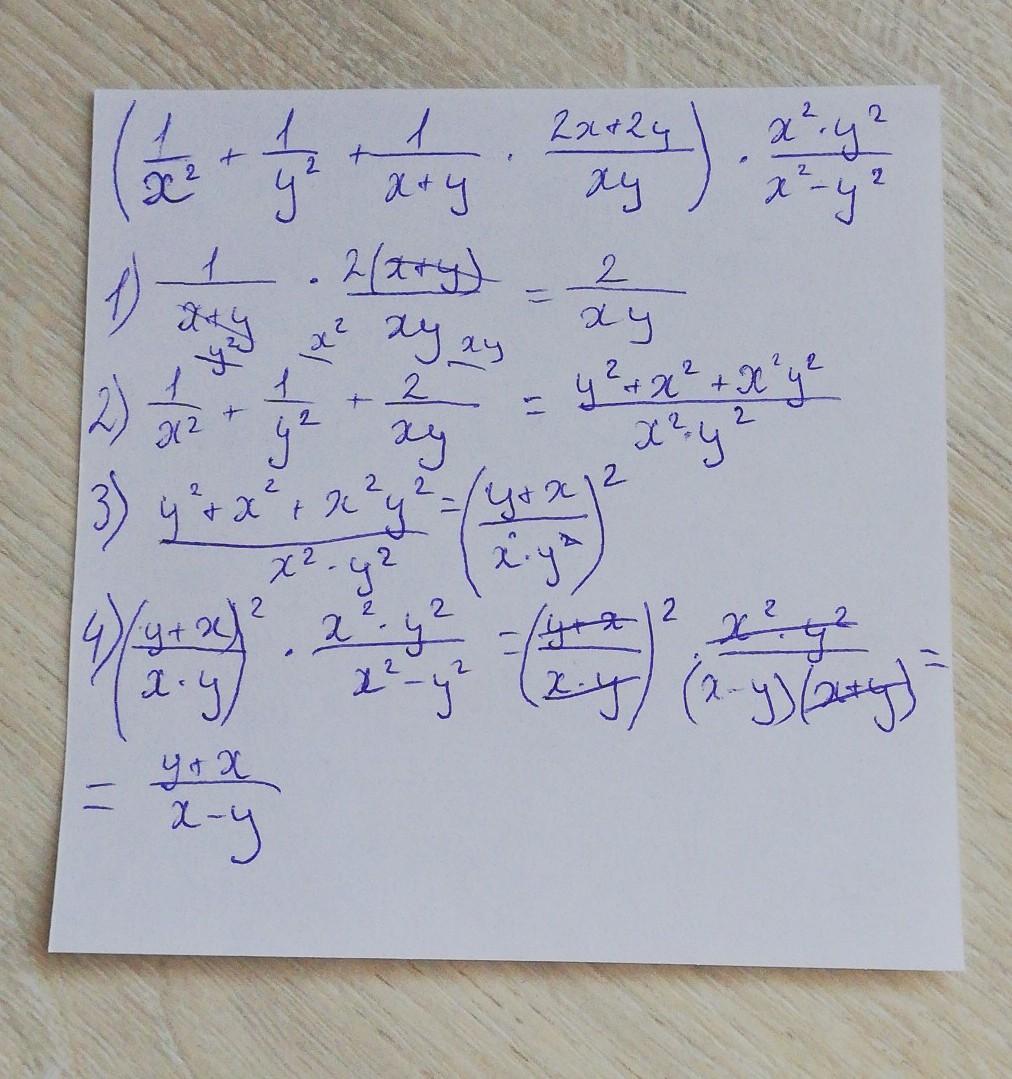 (1/x² + 1/y² + 1/(x+y) · (2x+2y)/(xy)) · (x²·y²)/(x²-y²)
1) 1/(x+y) · 2(x+y)/(xy) = 2/(xy)
y² x² xy
2) 1/x² + 1/y² + 2/(xy) = (y²+x²+x²y²)/(x²·y²)
3) (y²+x²+x²y²)/(x²·y²) = ((y+x)/(x²·y²))²
4) ((y+x)/(x·y))² · (x²·y²)/(x²-y²) = ((y+x)/(x·y))² · (x²·y²)/((x-y)(x+y)) =
= (y+x)/(x-y)